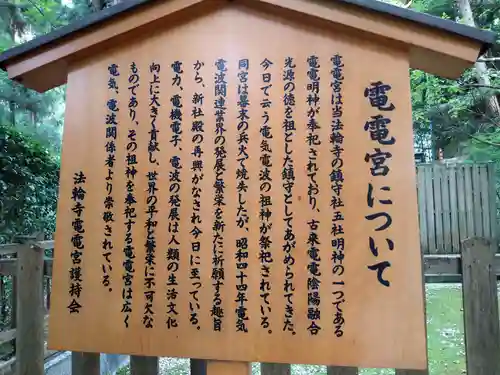 電電宮について
電電宮は当法輪寺の鎮守社五社明神の一つである
電電明神が奉祀されており、古来電電陰陽融合
光源の徳を祖とした鎮守としてあがめられてきた。
今日で云う電気電波の祖神が祭祀されている。
同宮は幕末の兵火で焼失したが、昭和四十四年電気
電波関連世界の発展と繁栄を新たに祈願する趣旨
から、新社殿の再興がなされ今日に至っている。
電力、電機電子、電波の発展は人類の生活文化
向上に大きく貢献し、世界の平和と繁栄に不可欠な
ものであり、その祖神を奉祀する電電宮は広く
電気、電波関係者より崇敬されている。
法輪寺電電宮護持会